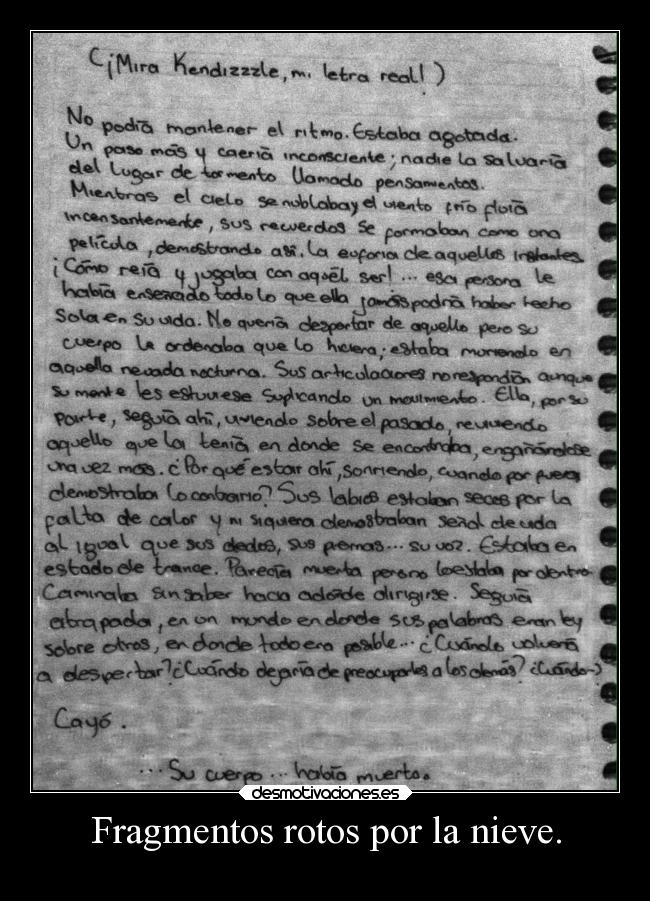 (¡Mira Kendizzzle, mi letra real!)
No podía mantener el ritmo. Estaba agotada.
Un paso más y caería inconsciente; nadie la salvaría
del lugar de tormento llamado pensamientos.
Mientras el cielo se nublaba y el viento frío fluía
incensantemente, sus recuerdos se formaban como una
película, demostrando así, la euforia de aquellos instantes.
¡Cómo reía y jugaba con aquél ser! ... esa persona le
había enseñado todo lo que ella jamás podría haber hecho
sola en su vida. No quería despertar de aquello pero su
cuerpo le ordenaba que lo hiciera; estaba muriendo en
aquella nevada nocturna. Sus articulaciones no respondían aunque
su mente les estuviese suplicando un movimiento. Ella, por su
parte, seguía ahí, viviendo sobre el pasado, reviviendo
aquello que la tenía en donde se encontraba, engañándose
una vez más. ¿Por qué estar ahí, sonriendo, cuando por fuera
demostraba lo contrario? Sus labios estaban secos por la
falta de calor y ni siquiera demostraban señal de vida
al igual que sus dedos, sus piernas... su voz. Estaba en
estado de trance. Parecía muerta pero no lo estaba por dentro.
Caminaba sin saber hacia adónde dirigirse. Seguía
atrapada, en un mundo en donde sus palabras eran ley
sobre otros, en donde todo era posible... ¿Cuándo volvería
a despertar? ¿Cuándo dejaría de preocuparles a los demás? ¿Cuándo...?
Cayó.
... Su cuerpo ... había muerto.
desmotivaciones.es
Fragmentos rotos por la nieve.